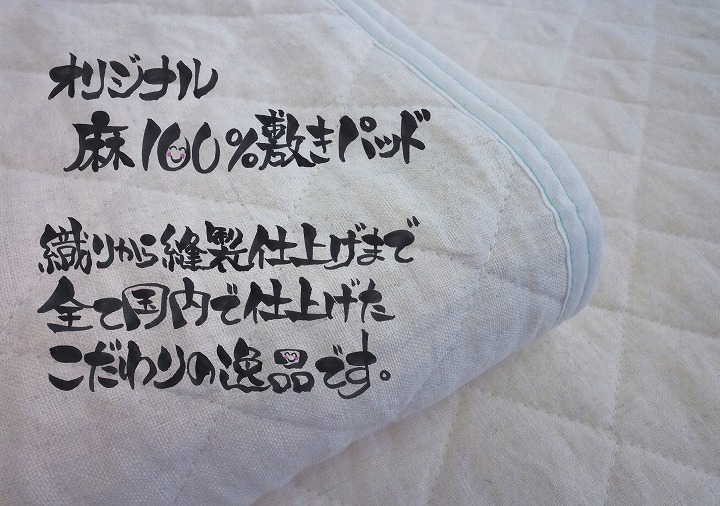 オリジナル
麻100%敷きパッド
織りから縫製仕上げまで
全て国内で仕上げた
こだわりの逸品です。